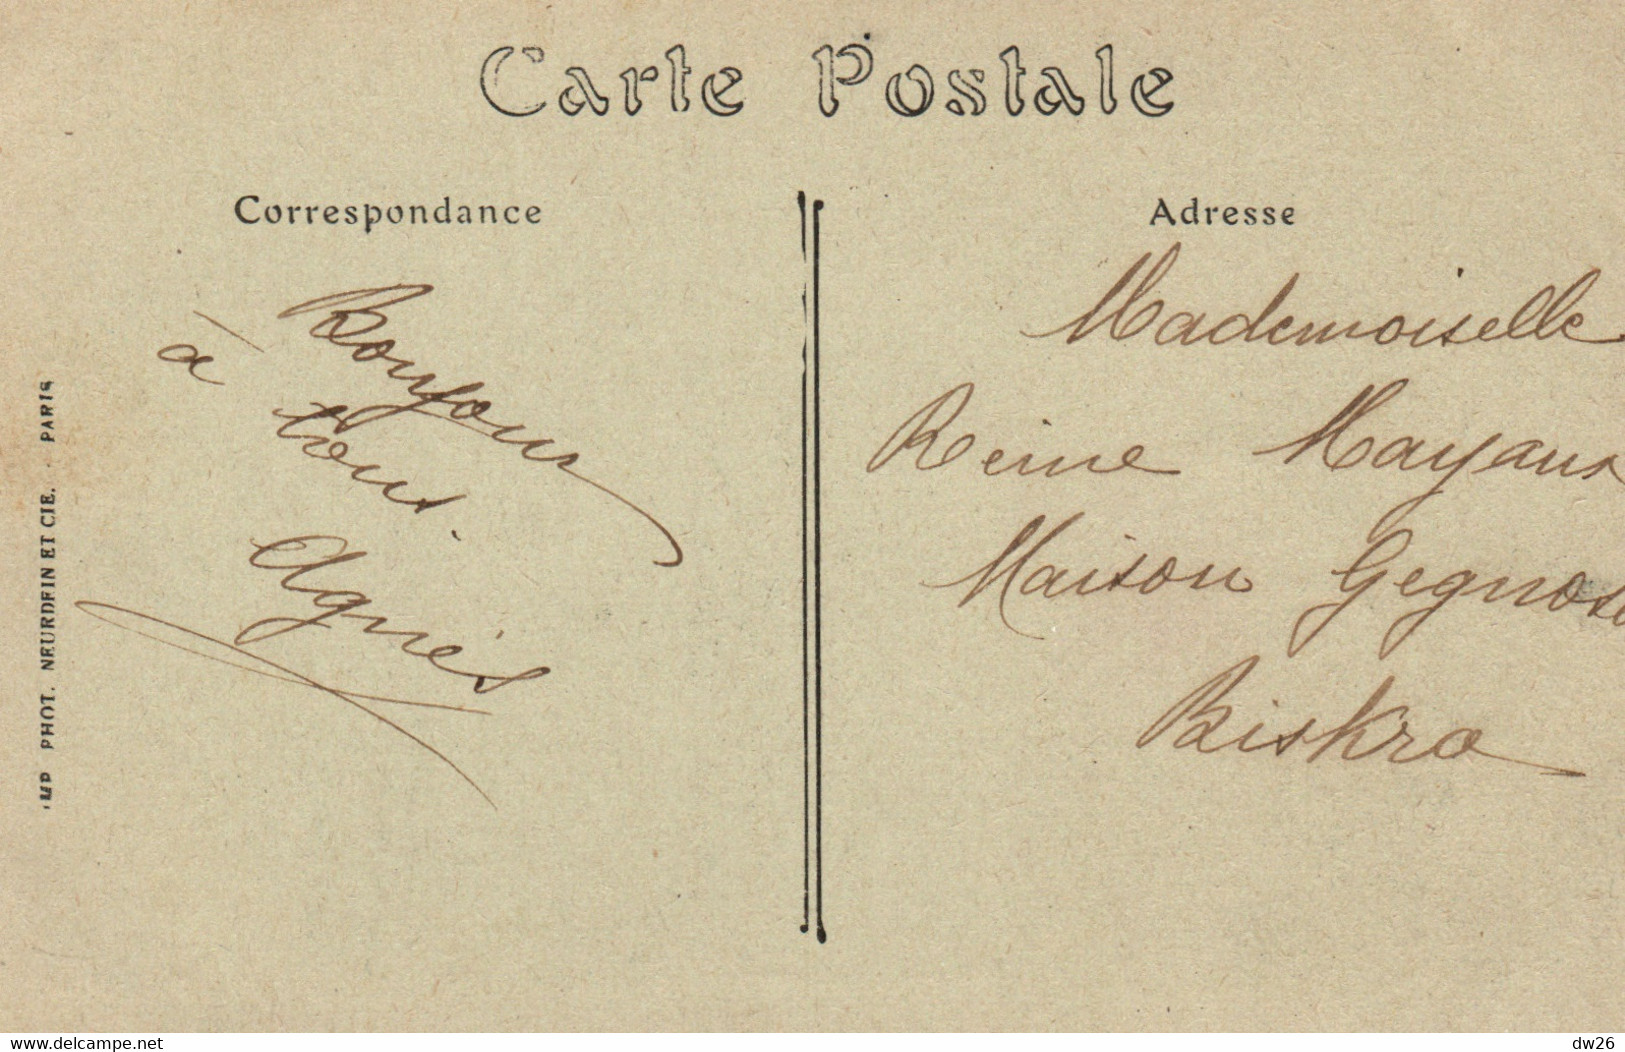 Carte Postale
Correspondance
Bonjour
à tous.
Agnès
Adresse
Mademoiselle
Reine Mayaux
Maison
Biskra
IMP PHOT. NEURDEIN ET CIE. - PARIS
www.delcampe.net
dw26